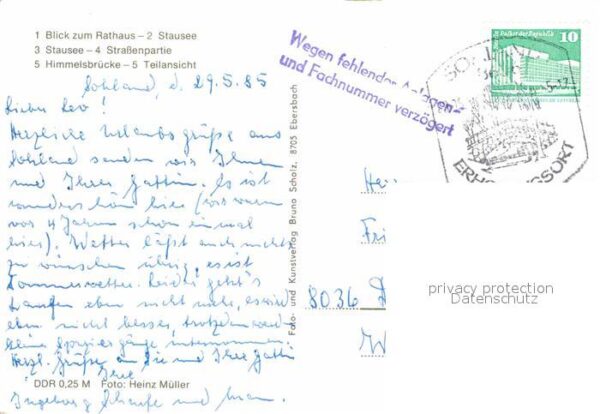 1 Blick zum Rathaus – 2 Stausee
3 Stausee – 4 Straßenpartie
5 Himmelsbrücke – 5 Teilansicht
Sohland, d. 29.5.85
Lieber Leo!
Herzliche Urlaubsgrüße aus
Sohland senden wir Ihnen
und Ihrer Gattin. Es ist
wunderschön hier (wir waren
vor 4 Jahren schon einmal
hier). Wetter läßt auch nichts
zu wünschen übrig, es ist
Sommerwetter. Leider geht's
Laufen eben nicht mehr, es wird
eben nicht besser, trotzdem werd
kleine Spaziergänge unternommen.
Herzl. Grüße an Sie und Ihre Gattin
Ihre
Ingeborg und Mann.
DDR 0,25 M Foto: Heinz Müller
Foto- und Kunstverlag Bruno Scholz, 8705 Ebersbach
Wegen fehlender
und Fachnummer verzögert
Palast der Republik
10
SOHLAND
ERHOLUNGSORT
Her
Fri
8036 D
W
privacy protection
Datenschutz